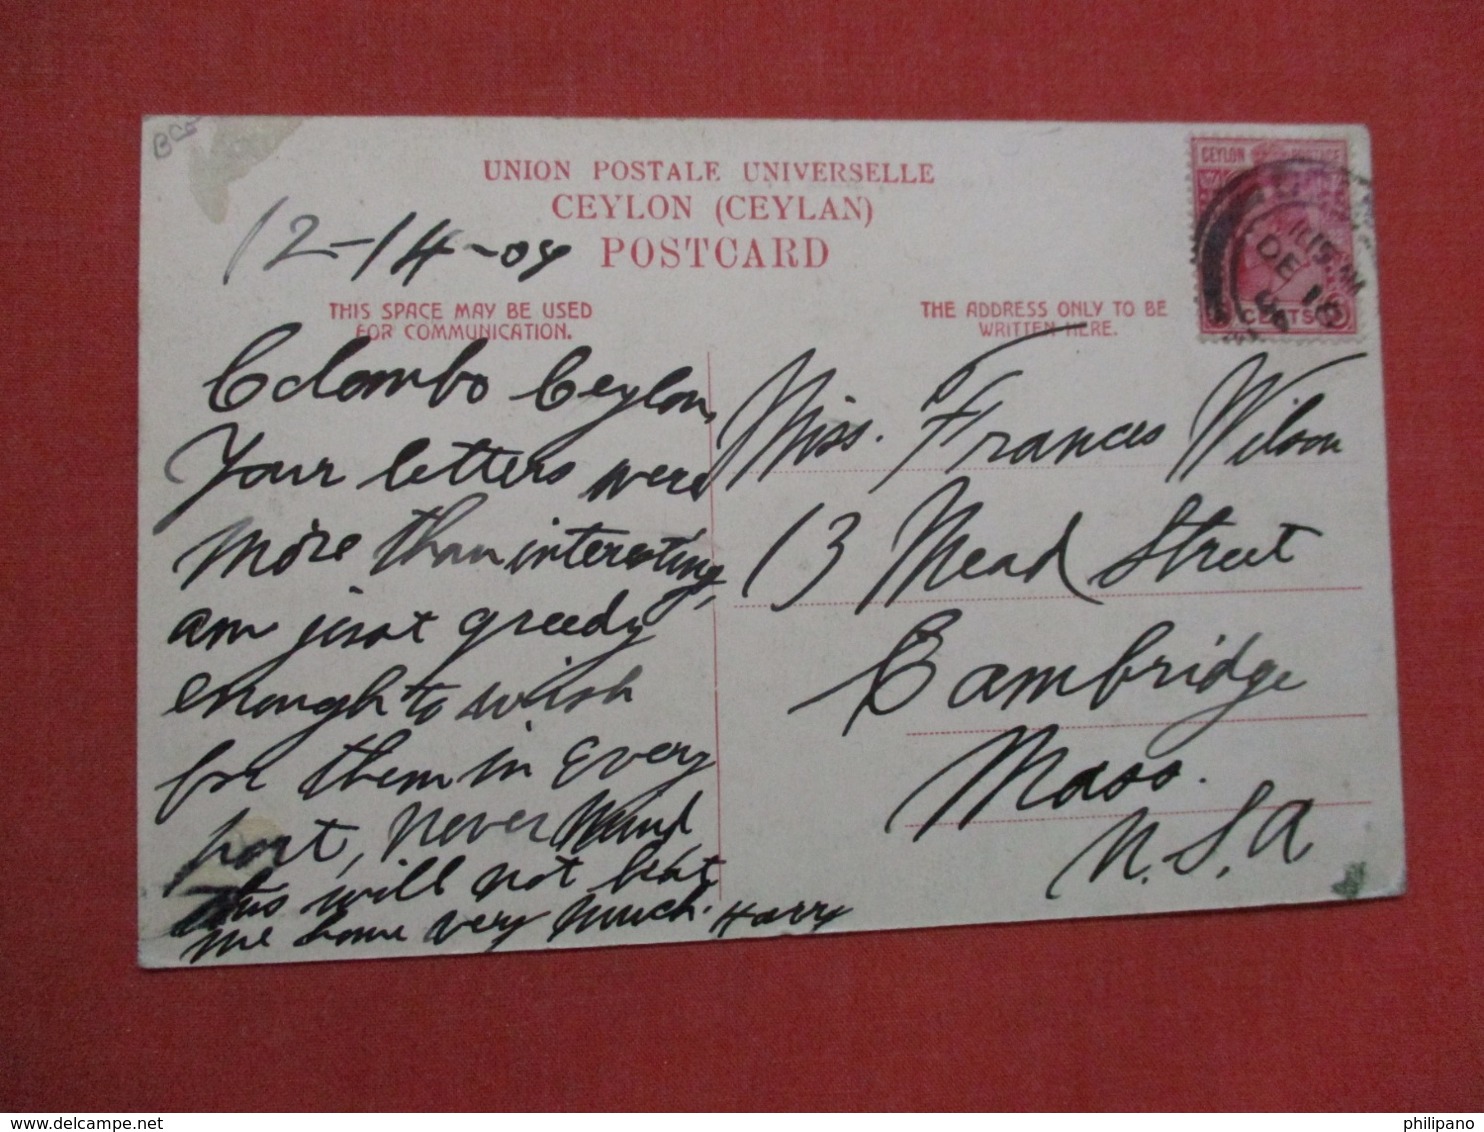 UNION POSTALE UNIVERSELLE
CEYLON (CEYLAN)
POSTCARD
12-14-09
THIS SPACE MAY BE USED
FOR COMMUNICATION.
THE ADDRESS ONLY TO BE
WRITTEN HERE.
CEYLON POSTAGE
CENTS
DE 18
Colombo Ceylon,
Your letters were
more than interesting,
am just greedy
enough to wish
for them in every
port, never mind,
this will not beat
me home very much. Harry
Miss. Frances Wilson
13 Mead Street
Cambridge
Mass.
U.S.A
philipano